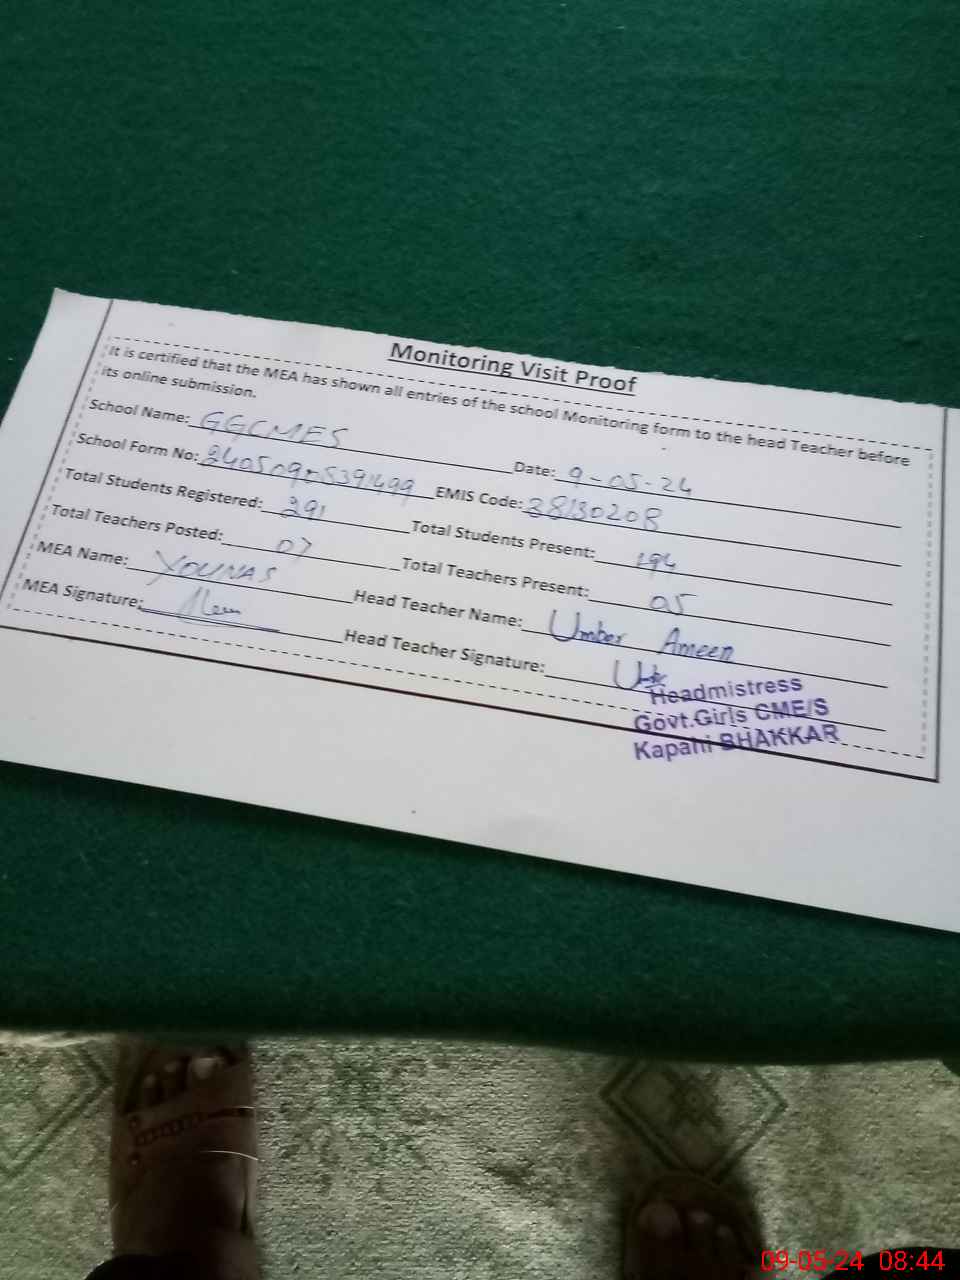 Monitoring Visit Proof
It is certified that the MEA has shown all entries of the school Monitoring form to the head Teacher before
its online submission.
School Name: GGCMES Date: 9-05-24
School Form No: EMIS Code: 38130208
Total Students Registered: 291 Total Students Present: 194
Total Teachers Posted: 07 Total Teachers Present: 05
MEA Name: YOUNAS Head Teacher Name: Umber Ameen
MEA Signature: Head Teacher Signature:
Headmistress
Govt.Girls CME/S
Kapahi BHAKKAR
09-05-24 08:44